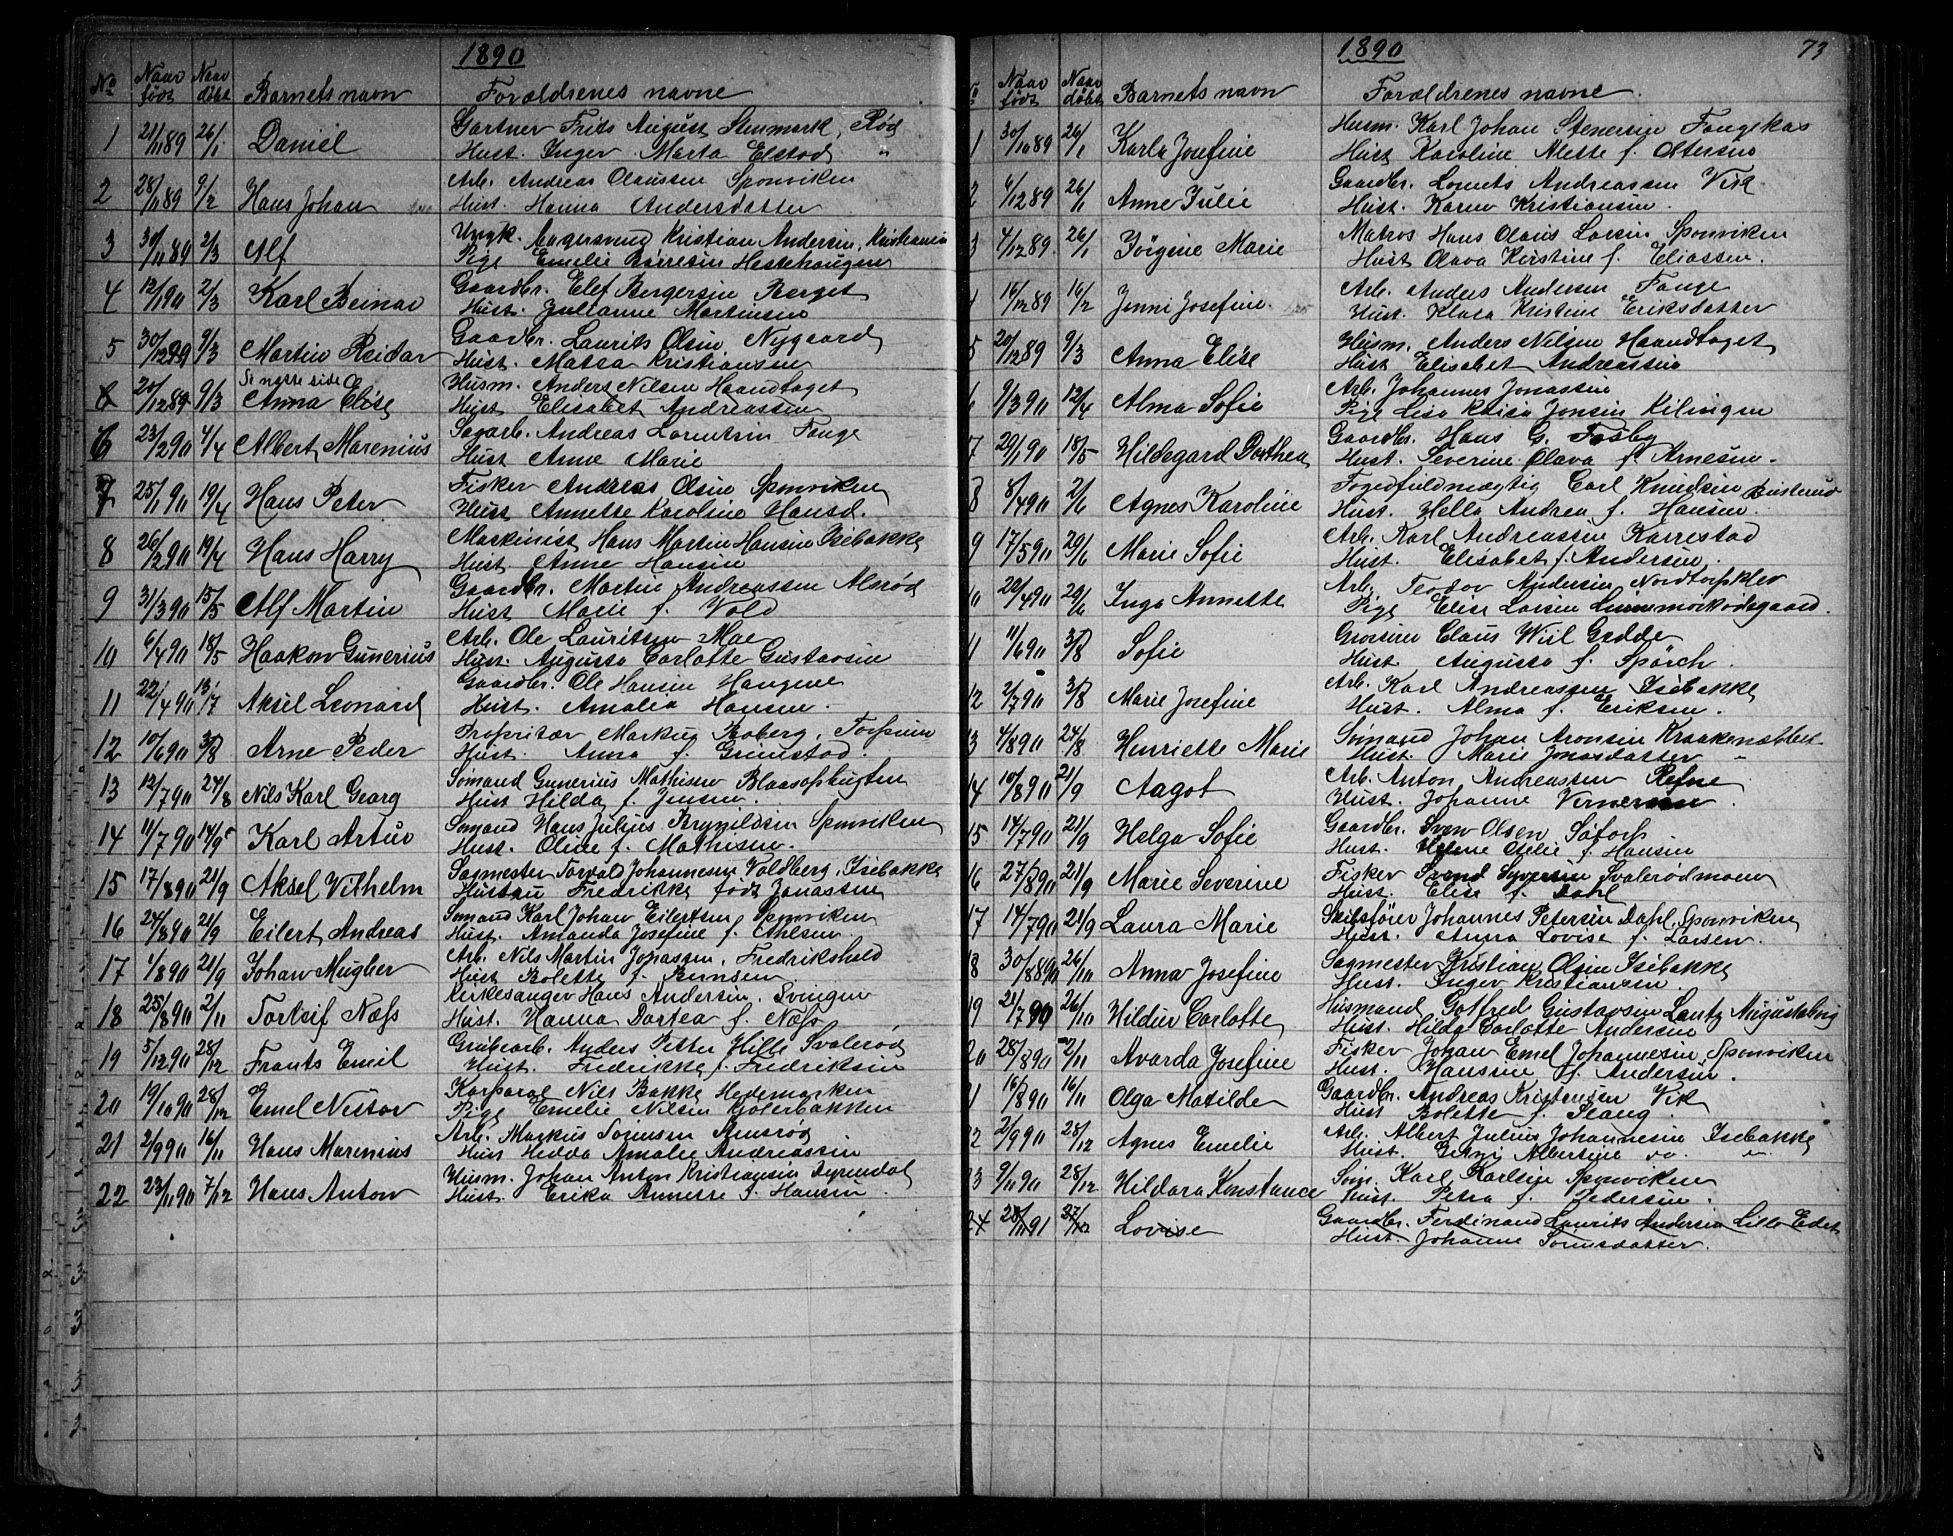 1890
No Naar født Naar døbt Barnets navn Forældrenes navne
1 21/11 89 26/1 Daniel Gartner Frits August Stenmark, Rød
Hust. Inger Marta Elstad "
2 28/11 89 9/2 Hans Johan Arb. Andreas Olaussen Sponviken
Hust. Hanna Andersdatter
3 30/11 89 2/3 Alf Ungk. Kristian Andersen, Kristiania
Pige Emelie Børresen Hestehaugen
4 12/1 90 2/3 Karl Beinar Gaardbr. Elef Bergersen Berget
Hust. Julianne Martinsen
5 30/12 89 9/3 Martin Reidar Gaardbr. Laurits Olsen Nygaard
Hust. Matea Kristiansen
6 20/12 89 9/3 Se næste side Anna Elise Husm. Anders Nilsen Haandtaget
Hust Elisabet Andreassen
6 23/2 90 4/4 Albert Marenius Sagarb. Andreas Lorentsen Fange
Hust Anne Marie
7 25/1 90 19/4 Hans Peter Fisker Andreas Olsen Sponviken
Hust Annette Karoline Hansd.
8 26/2 90 19/4 Hans Harry Maskinist Hans Martin Hansen Isebakke
Hust Anne Hansen
9 31/3 90 15/5 Alf Martin Gaardbr. Martin Andreassen Alsrød
Hust Marie f. Vold
10 6/4 90 18/5 Haakon Gunerius Arb. Ole Lauritsen Mae
Hust. Augusta Carlotte Gustavsen
11 22/4 90 13/7 Aksel Leonard Gaardbr. Ole Hansen Haugene
Hust. Amalia Hansen.
12 10/6 90 3/8 Arne Peder Propritær Markus Boberg, Torpum
Hust. Anna f. Grimstad.
13 12/7 90 24/8 Nils Karl Georg Sømand Gunerius Mathisen Blaasopbugten
Hust Hilda f. Jensen.
14 11/7 90 14/9 Karl Artur Sømand Hans Julius Brynildsen Sponviken
Hust. Oline f. Mathisen.
15 17/8 90 21/9 Aksel Vilhelm Sagmester Torvald Johannesen Voldberg, Isebakke
Hustru Fredrikke født Jonassen
16 24/8 90 21/9 Eilert Andreas Sømand Karl Johan Eilertsen Sponviken
Hust. Amanda Josefine f. Ahlsen.
17 1/8 90 21/9 Johan Mugber Arb. Nils Martin Jonassen, Fredrikshald
Hust Bolette f. Berntsen
18 25/8 90 2/11 Torleif Næss Kirkesanger Hans Andersen, Svingen
Hust. Hanna Dortea f. Næss
19 5/12 90 28/12 Frants Emil Grubearb. Anders Petter Hille Svalerød
Hust. Fredrikke f. Fredriksen
20 19/10 90 28/12 Emel Nestor Korporal Nils Bakke Hedemarken
Pige Emelie Nilsen Golerbakken
21 2/9 90 16/11 Hans Marenius Arb. Markus Sørensen Remsrød
Hust Hedda Amalie Andreassen
22 23/11 90 7/12 Hans Anton Husm. Johan Anton Kristiansen Dyrendal
Hust. Erika Annette f. Hansen.
1890 73
Naar født Naar døbt Barnets navn Forældrenes navne
1 30/10 89 26/1 Karla Josefine Husm. Karl Johan Stenersen Fangekas
Hust Karoline Alette f. Ottersen
2 6/12 89 26/1 Anne Julie Gaardbr. Lorents Andreassen Vik
Hust. Karen Kristiansen.
3 4/12 89 26/1 Jørgine Marie Matros Hans Olaus Larsen Sponviken
Hust Olava Kerstine f. Eliassen.
4 16/12 89 16/2 Jenni Josefine Arb. Anders Andersen Fange
Hust. Klara Kristine Eriksdatter
5 20/12 89 9/3 Anna Elise Husm. Anders Nilsen Haandtaget
Hust Elisabet Andreassen
6 9/3 90 12/4 Alma Sofie Arb. Johannes Jonassen
Pige Lisa Kaisa Jonsen Kilingen
7 29/1 90 18/5 Hildegard Dorthea Gaardbr. Hans G. Fosby
Hust. Severine Olava f. Arnesen.
8 8/4 90 2/6 Agnes Karoline Fogedfuldmægtig Carl Knudsen Buskerud
Hust. Hella Andrea f. Hansen.
9 17/5 90 29/6 Marie Sofie Arb. Karl Andreassen Karrestad
Hust. Elisabet f. Andersen.
10 20/4 90 29/6 Inga Annette Arb. Teodor Andersen, Nordtorpklev
Pige Elise Larsen
11 11/6 90 3/8 Sofie Grosserer Claus Wiil Gedde
Hust. Augusta f. Spörch.
12 2/7 90 3/8 Marie Josefine Arb. Karl Andreassen Isebakke
Hust. Alma f. Eriksen.
13 4/8 90 24/8 Henriette Marie Sømand Johan Aronsen Kraakenæbbet
Hust. Marie Jonasdatter "
14 10/8 90 21/9 Aagot Arb. Anton Andreassen Refne
Hust. Johanne Vernersen.
15 14/7 90 21/9 Helga Sofie Gaardbr. Sven Olsen Søtorp
Hust. Helene Otelie f. Hansen
16 27/8 90 21/9 Marie Severine Fisker Svend Syversen Svalerødmoen
Hust. Elise f. Dahl
17 14/7 90 21/9 Laura Marie Skibsfører Johannes Petersen Dahl, Sponviken
Hust. Anna Lovise f. Larsen.
18 30/8 89 26/10 Anna Josefine Sagmester Kristian Olsen Isebakke
Hust. Inger Kristiansen.
19 21/7 90 26/10 Hildur Carlotte Husmand Gotfred Gustavsen Lantz Augustaborg
Hust. Hilda Carlotte Andersen
20 28/8 90 2/11 Avarda Josefine Fisker Johan Emel Johannesen, Sponviken
Hust. Hanssine f. Andersen.
21 16/8 90 16/11 Olga Matilde Gaardbr. Andreas Kristensen Vik
Hust Bolette f. Prang.
22 2/9 90 28/12 Agnes Emelie Arb. Albert Julius Johannesen Isebakke
Hust. Albertine
23 9/11 90 28/12 Hildara Konstance Søm. Karl Karlsen Sponviken
Hust. Petra f. Pedersen.
24 28/11 91 27/12 Lovise Gaardbr. Ferdinand Laurits Andersen Lille Edet
Hust. Johanne Sørensdatter.